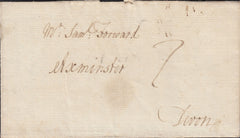 Mr. Saml. Forward
Axminster 7
Devon